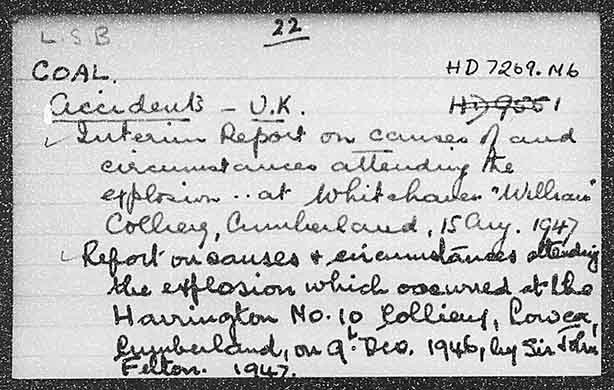 L.S.B 22
COAL. HD 7269. M6
Accidents - U.K. HD 9551
Interim Report on causes of and
circumstances attending the
explosion .. at Whitehaven "William"
Colliery, Cumberland, 15 Aug. 1947
Report on causes & circumstances attending
the explosion which occurred at the
Harrington No. 10 Colliery, Lowca,
Cumberland, on 9th Dec. 1946, by Sir John
Felton. 1947.